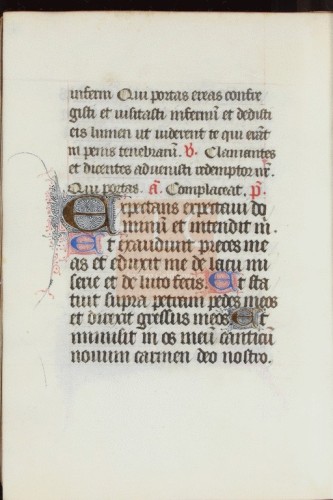 inferni Qui portas ereas confre
gisti et visitasti infernũ et dedisti
eis lumen ut viderent te qui erãt
in penis tenebrarũ. v. Clamantes
et dicentes advenisti redemptor nr̃.
Qui portas. a. Complaceat. p.
Expectans expectavi do
minum et intendit m.
Et exaudivit preces me
as et eduxit me de lacu mi
serie et de luto fecis. Et sta
tuit supra petram pedes meos
et direxit gressus meos. Et
immisit in os meũ canticũ
novum carmen deo nostro.